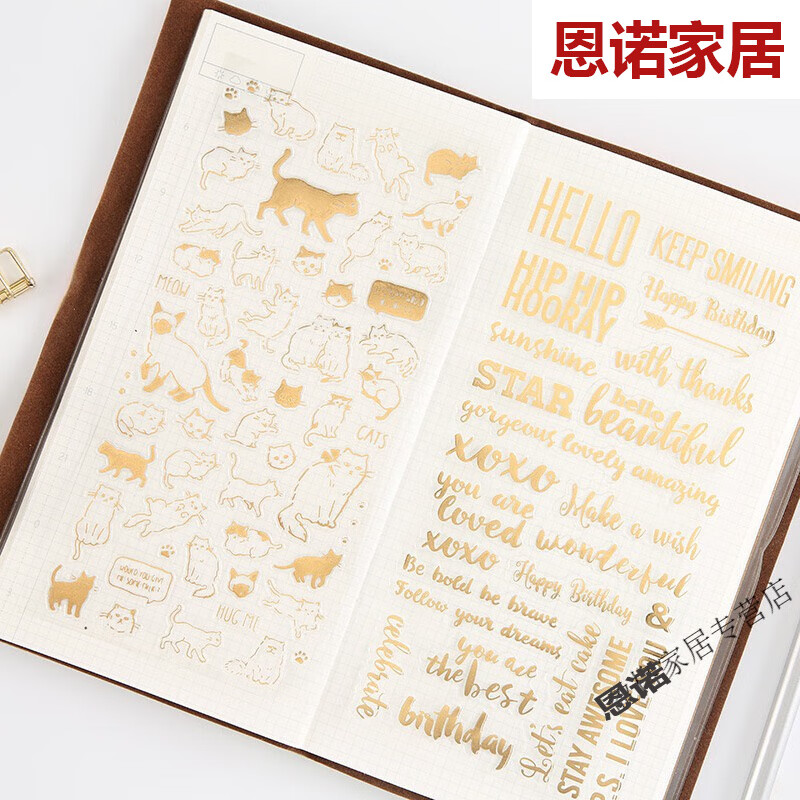 恩诺家居
MEOW
CATS
WOULD YOU GIVE
ME SOME CAKE?
HUG ME
HELLO
KEEP SMILING
HIP HIP
HOORAY
Happy Birthday
sunshine
with thanks
STAR
hello
beautiful
gorgeous, lovely amazing
xoxo
Make a wish
you are
loved wonderful
xoxo
Happy Birthday
&
Be bold be brave
Follow your dreams,
you are
the best
celebrate
birthday
Let's eat cake
STAY AWESOME
P.S. I LOVE YOU
恩诺家居专营店